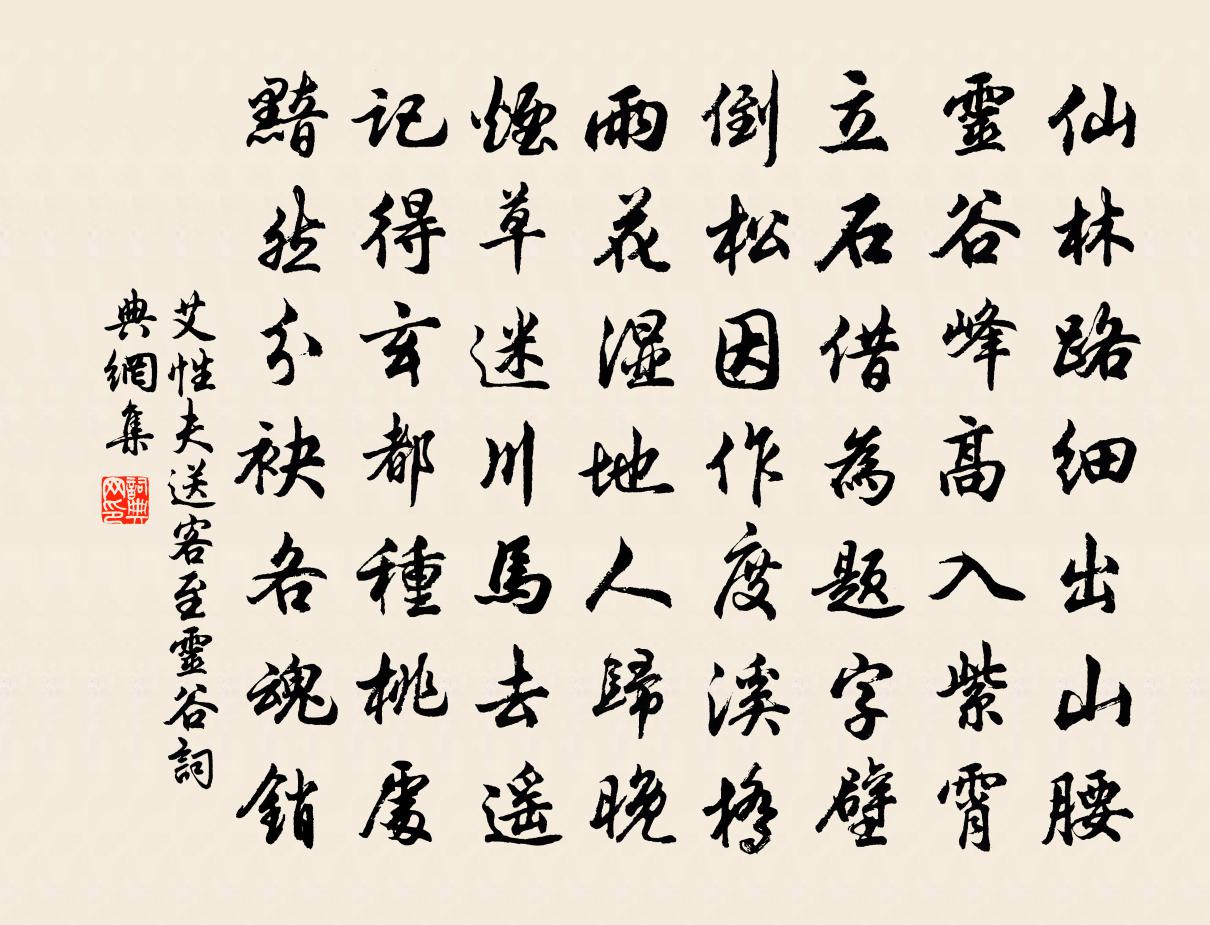 仙林路细出山腰
靈谷峰高入紫霄
立石借為题字壁
倒松因作度溪橋
雨花湿地人歸晚
煙草迷川馬去遥
记得玄都種桃處
黯然分袂各魂銷
艾性夫送客至靈谷詞
典網集
詞典
网印